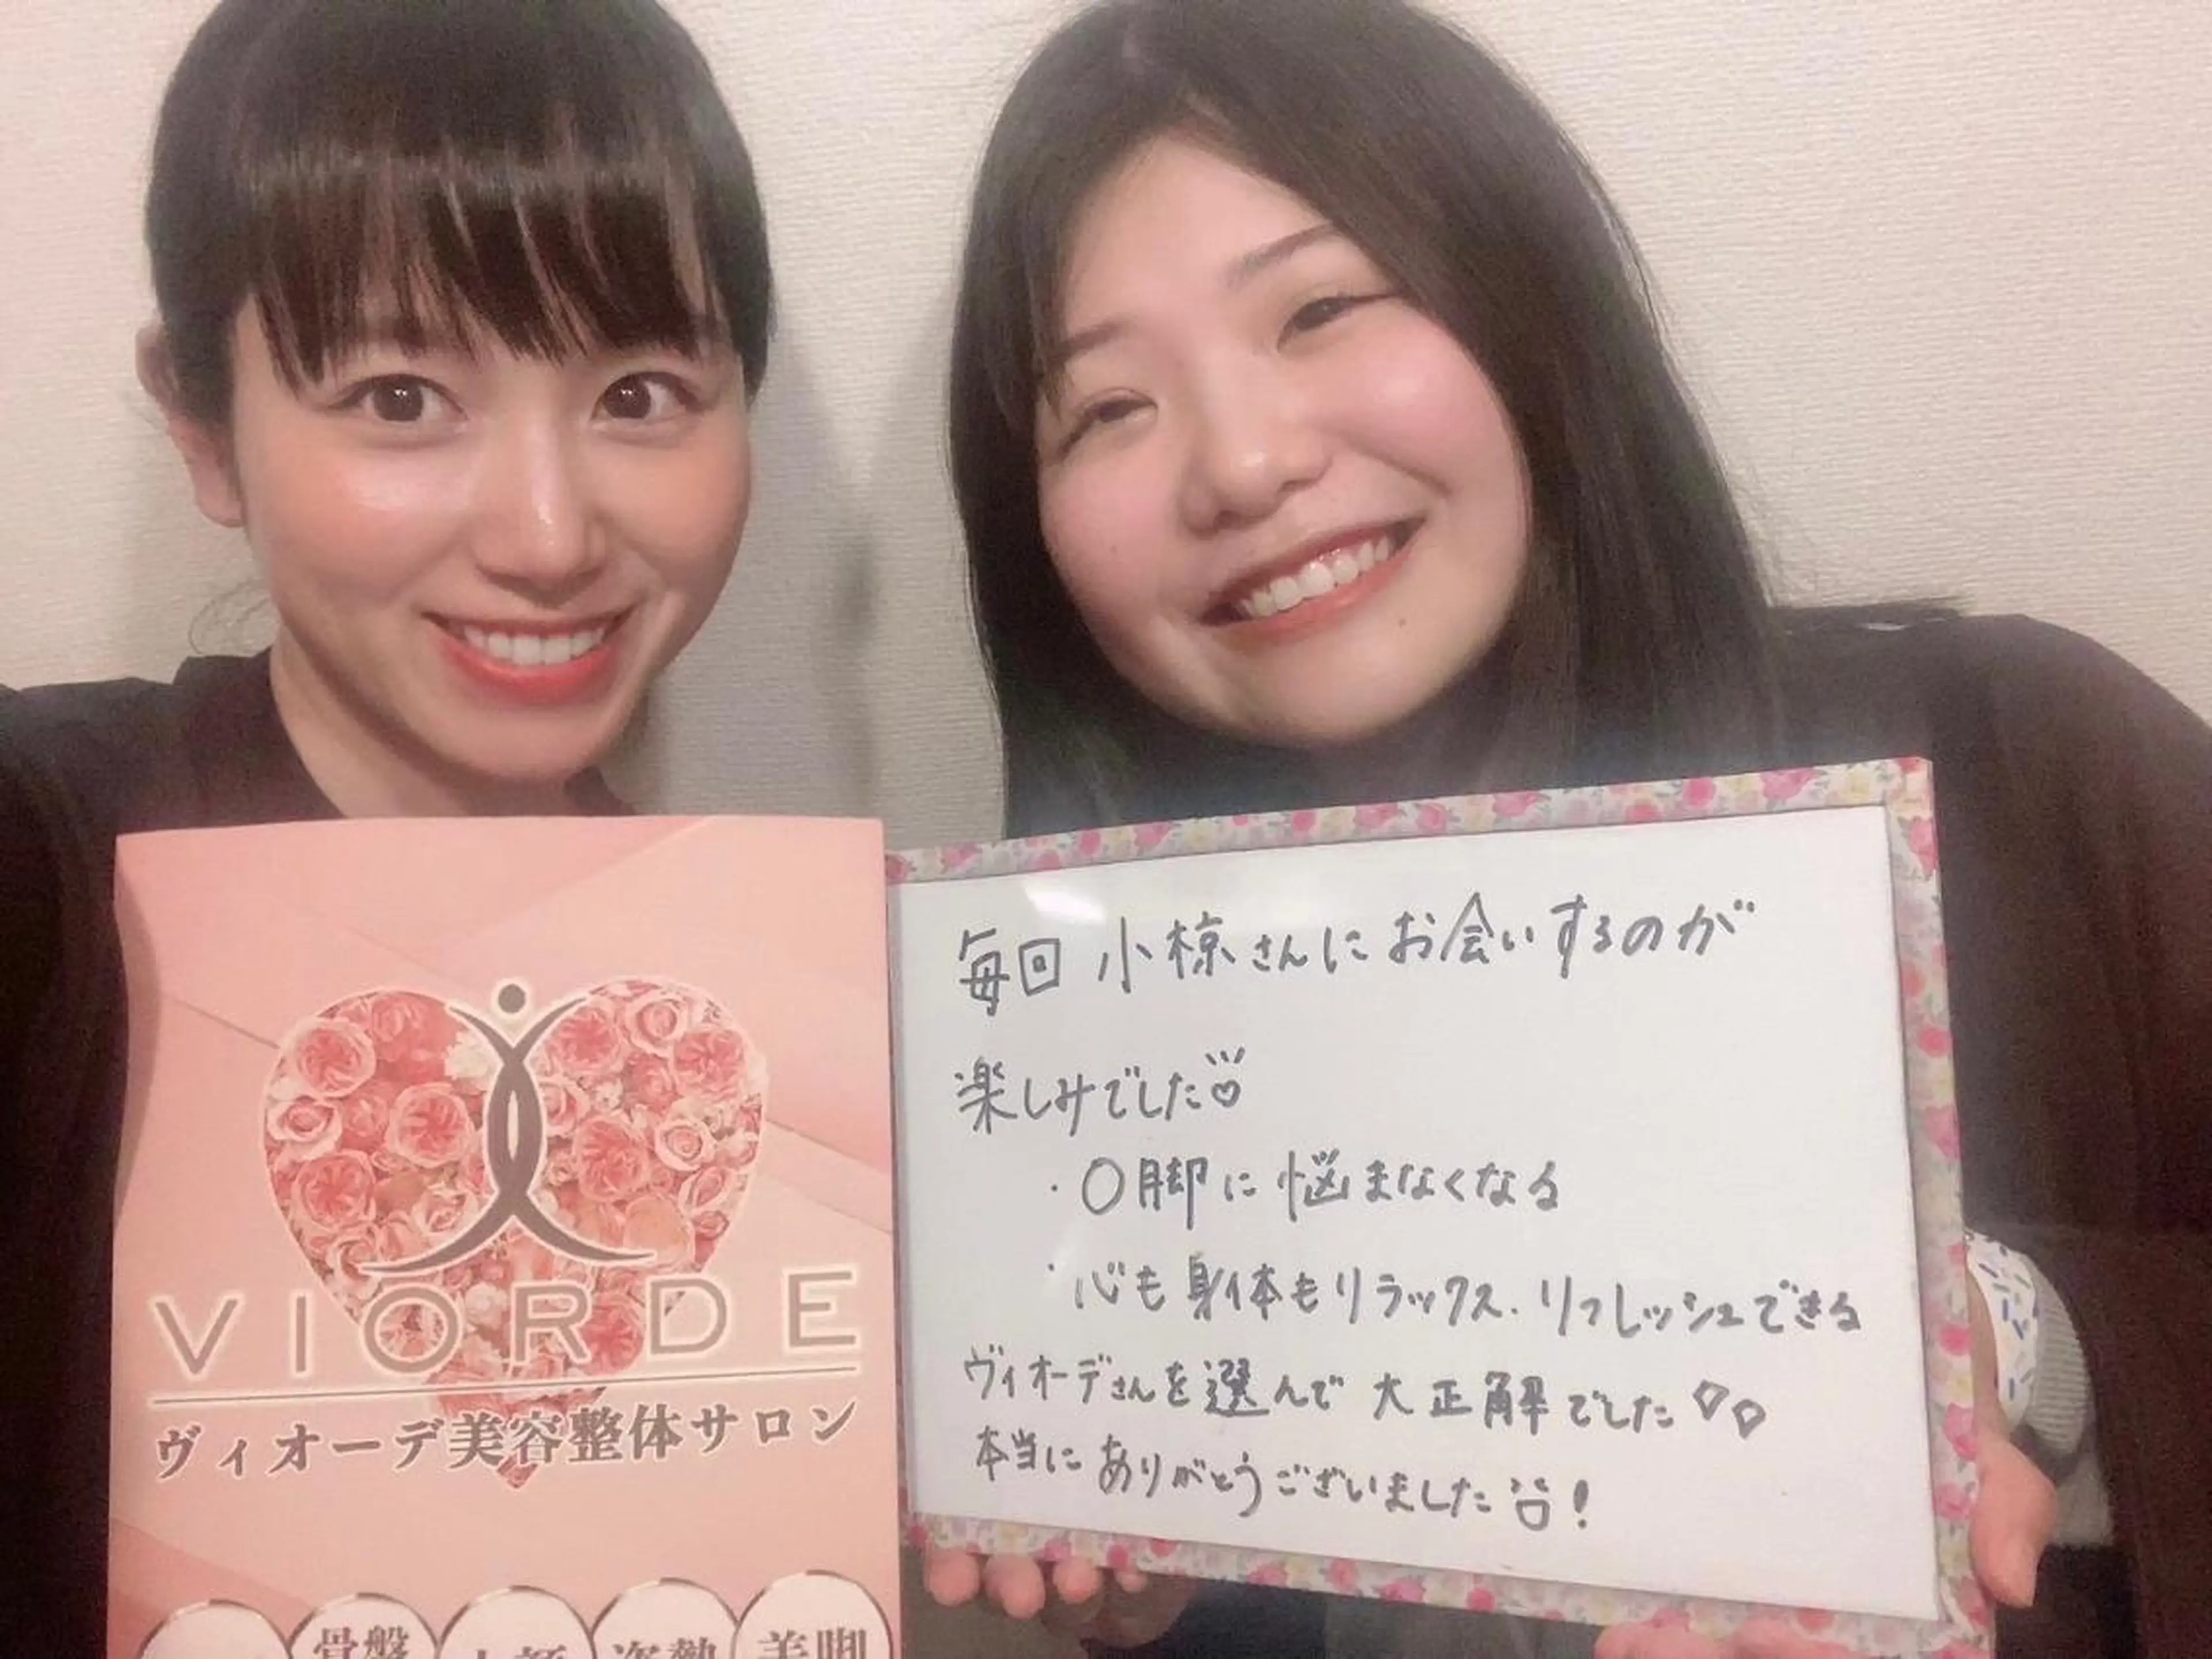 VIORDE
ヴィオーデ美容整体サロン
骨盤
小顔
姿勢
美脚
毎回 小椋さんにお会いするのが
楽しみでした
・O脚に悩まなくなる
・心も身体もリラックス.リフレッシュできる
ヴィオーデさんを選んで大正解でした
本当にありがとうございました!